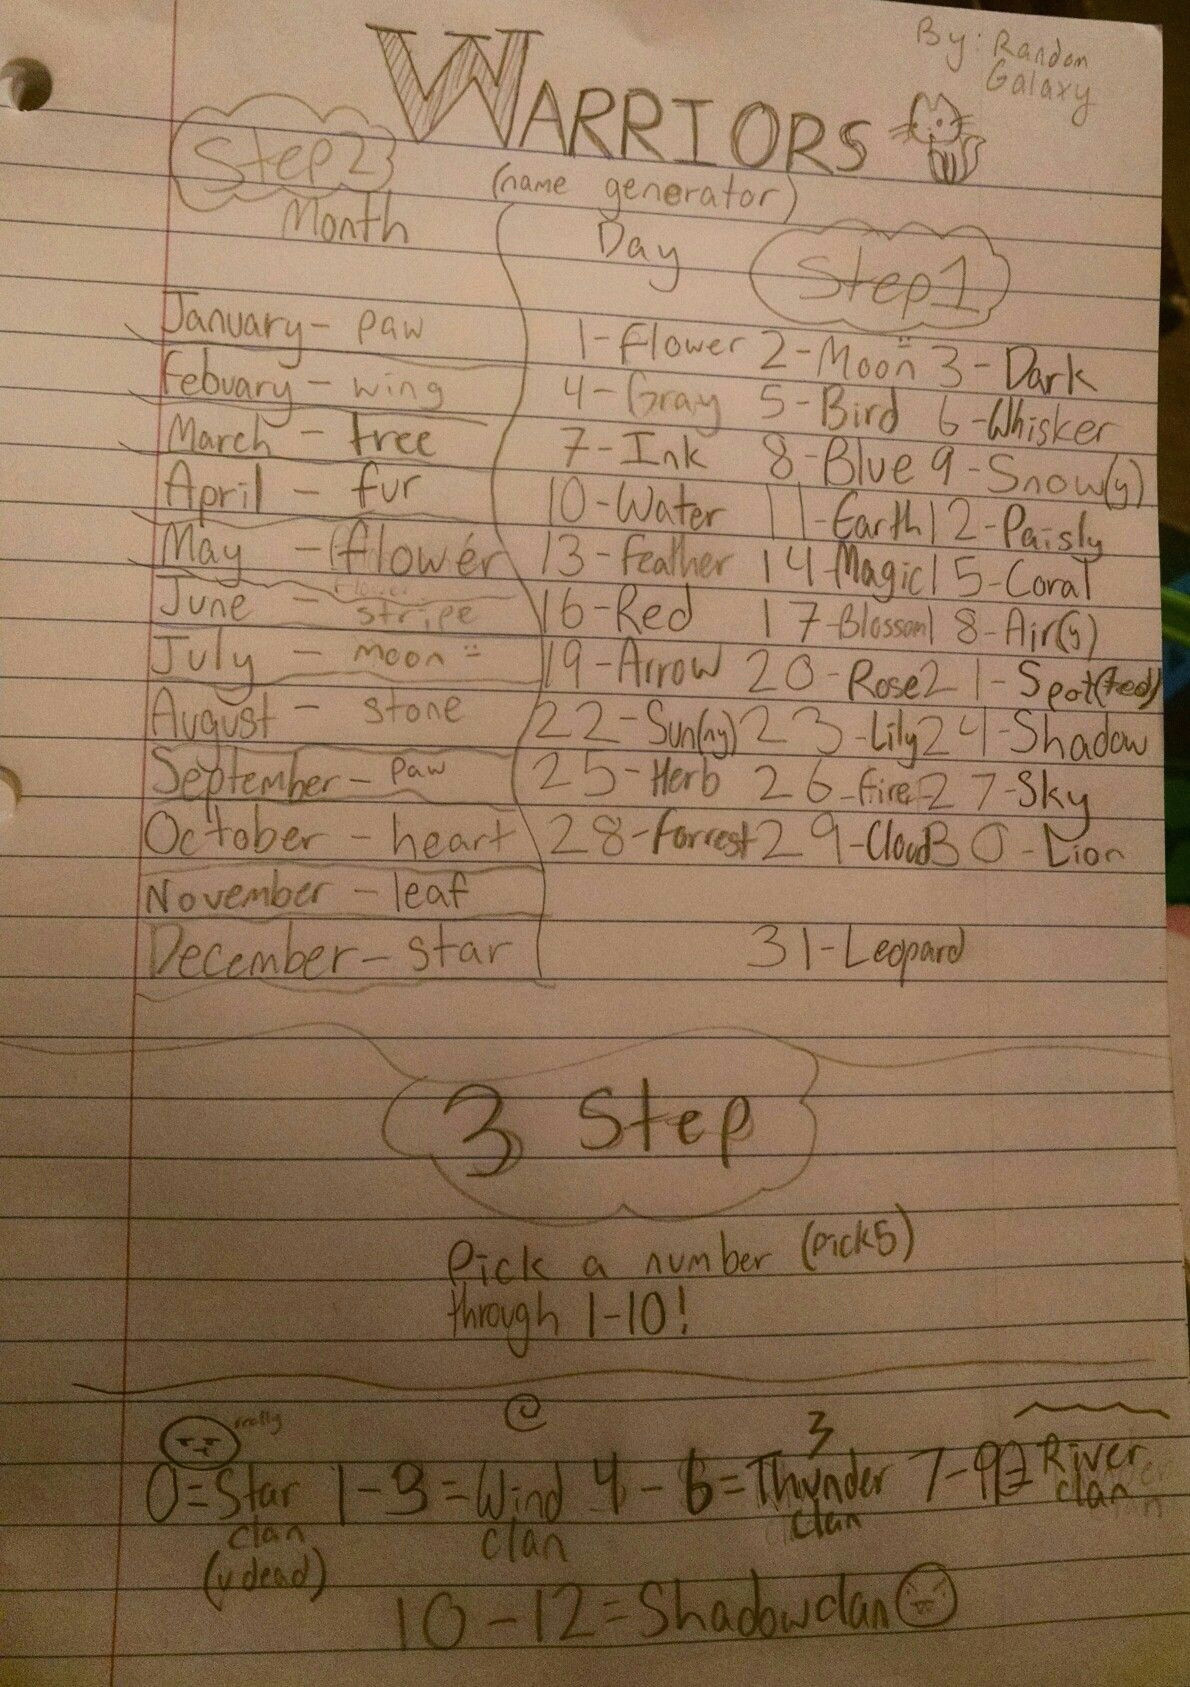 By: Random
Galaxy
WARRIORS
(name generator)
Step 2
Month
January - paw
Febuary - wing
March - tree
April - fur
May - flower
June - stripe
July - moon
August - stone
September - paw
October - heart
November - leaf
December - star
Day
Step 1
1-Flower 2-Moon 3-Dark
4-Gray 5-Bird 6-Whisker
7-Ink 8-Blue 9-Snow(y)
10-Water 11-Earth 12-Paisly
13-Feather 14-Magic 15-Coral
16-Red 17-Blossom 18-Air(y)
19-Arrow 20-Rose 21-Spot(ted)
22-Sun(ny) 23-Lily 24-Shadow
25-Herb 26-fire 27-Sky
28-Forrest 29-Cloud 30-Lion
31-Leopard
3 Step
Pick a number (pick5)
through 1-10!
really
0=Star clan (y dead) 1-3=Wind clan 4-6=Thunder clan 7-9=River clan
10-12=Shadowclan